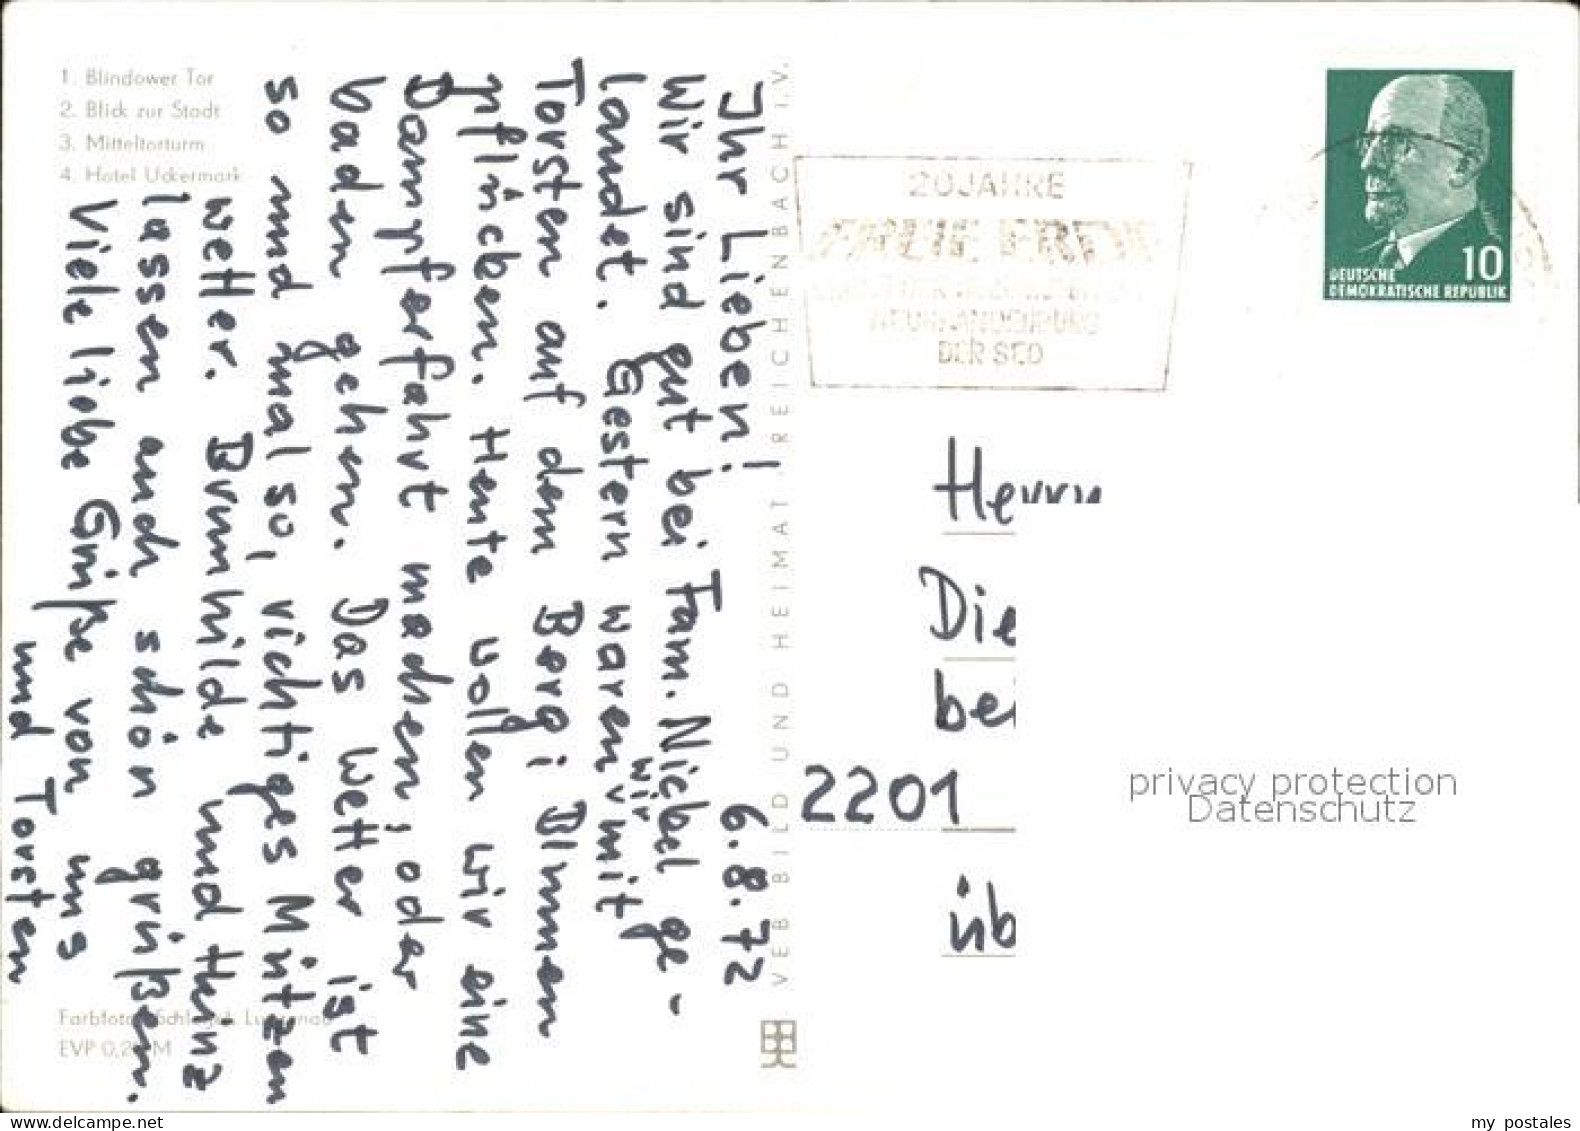 1. Blindower Tor
2. Blick zur Stadt
3. Mitteltorturm
4. Hotel Uckermark
6.8.72
Ihr Lieben!
Wir sind gut bei Fam. Niebel ge-
landet. Gestern waren wir mit
Torsten auf dem Berg; Blumen
pflücken. Heute wollen wir eine
Dampferfahrt machen; oder
baden gehen. Das Wetter ist
so und mal so, richtiges Mützen
wetter. Brunhilde und Heinz
lassen auch schön grüßen.
Viele liebe Grüße von uns
und Torsten
Farbfoto: Schlegel,
EVP 0,20 M
VEB BILD UND HEIMAT REICHENBACH I.V.
20 JAHRE
DER SED
10
DEUTSCHE
DEMOKRATISCHE REPUBLIK
Herrn
Die
bei
2201
üb
privacy protection
Datenschutz
www.ansichtskartenversand.com
my postales